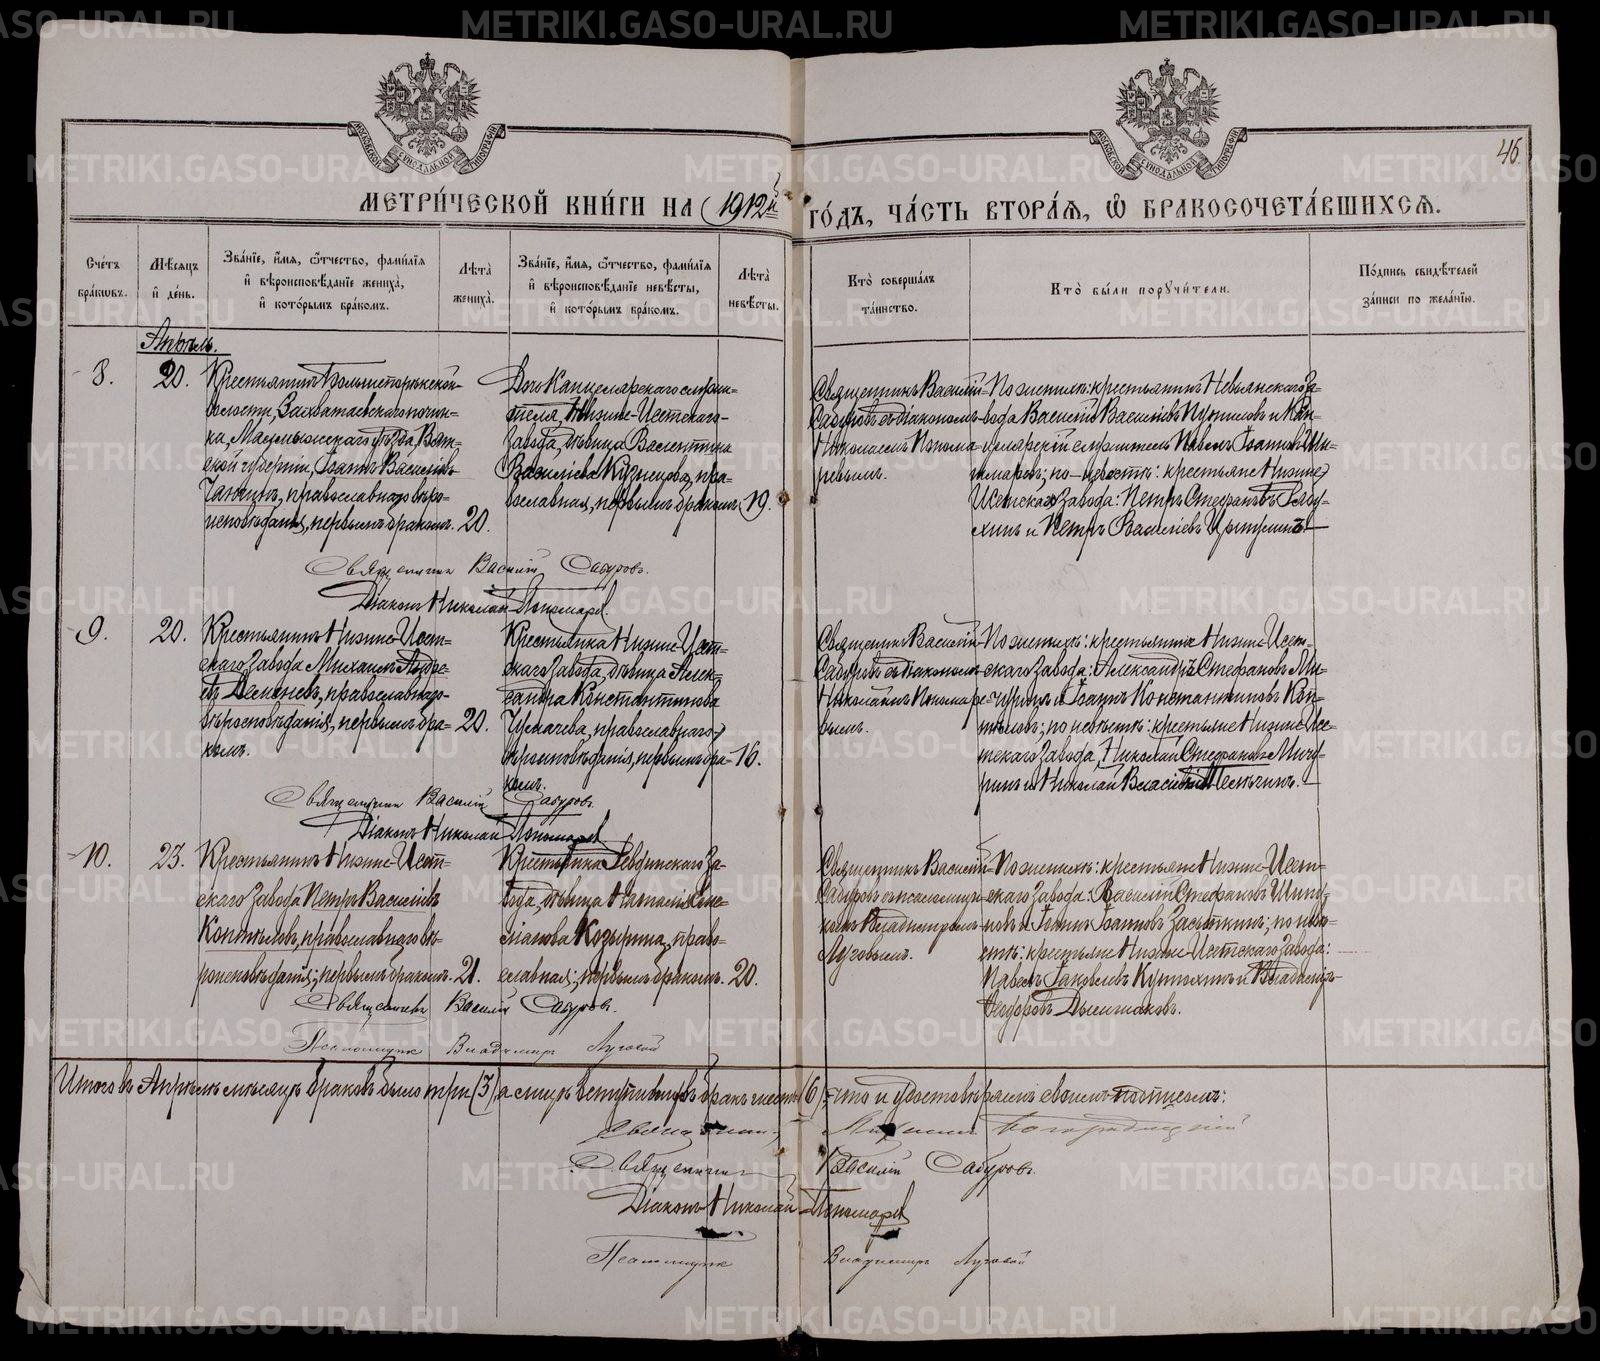 46
МЕТРИ́ЧЕСКОЙ КНИ́ГИ НА 1912й ГО́ДЪ, ЧА́СТЬ ВТОРА́Я, Ѿ БРАКОСОЧЕТА́ВШИХСЯ.
Сче́тъ бра́кѡвъ.
Мѣ́сяцъ и҆ де́нь.
Зва́нїе, и҆́мя, ѻ҆́тчество, фами́лїя и҆ вѣроисповѣ́данїе жениха̀, и҆ кото́рымъ бра́комъ.
Лѣ́та жениха̀.
Зва́нїе, и҆́мя, ѻ҆́тчество, фами́лїя и҆ вѣроисповѣ́данїе невѣ́сты, и҆ кото́рымъ бра́комъ.
Лѣ́та невѣ́сты.
Кто̀ соверша́лъ та́инство.
Кто̀ бы́ли поручи́тели.
По́дпись свидѣ́телей за́писи по жела́нїю.
Апрѣль.
8.
20.
Крестьянинъ
волости, Захватаевскаго почин-
ка, Малмыжскаго уѣзда, Вят-
ской губерніи, Іоаннъ Васильевъ
православнаго вѣро-
исповѣданія, первымъ бракомъ.
20.
Дочь Канцелярскаго служи-
теля, Нижне-Исетскаго
завода, дѣвица Валентина
Васильева Кузнецова, пра-
вославная, первымъ бракомъ
19.
Священникъ Василій
Сабуровъ съ діакономъ
Николаемъ Понома-
ревымъ.
По женихѣ: крестьянинъ Невьянскаго За-
вода Василій Васильевъ и Кан-
целярскій служитель Павелъ Іоанновъ
по невѣстѣ: крестьяне Нижне-
Исетскаго завода: Петръ Стефановъ Глу-
хихъ и Петръ Васильевъ
Священникъ Василій Сабуровъ.
Діаконъ Николай Пономаревъ
9.
20.
Крестьянинъ Нижне-Исет-
скаго завода Михаилъ Андре-
евъ православнаго
вѣроисповѣданія, первымъ бра-
комъ.
20.
Крестьянка Нижне-Исет-
скаго завода, дѣвица Алек-
сандра Константинова
православнаго
вѣроисповѣданія, первымъ бра-
комъ.
16.
Священникъ Василій
Сабуровъ съ діакономъ
Николаемъ Пономаре-
вымъ.
По женихѣ: крестьянинъ Нижне-Исет-
скаго завода: Александръ Стефановъ Ми-
чуринъ и Іоаннъ Константиновъ Коп-
тѣловъ; по невѣстѣ: крестьяне Нижне-Исе-
тскаго завода, Николай Стефановъ Мичу-
ринъ и Николай
Священникъ Василій Сабуровъ.
Діаконъ Николай Пономаревъ
10.
23.
Крестьянинъ Нижне-Исет-
скаго завода Петръ Васильевъ
Коптѣловъ, православнаго вѣ-
роисповѣданія; первымъ бракомъ.
21.
Крестьянка Ревдинскаго За-
вода, дѣвица
Козырина, право-
славная; первымъ бракомъ.
20.
Священникъ Василій
Сабуровъ съ псаломщи-
комъ Владимиромъ
Луговымъ.
По женихѣ: крестьяне Нижне-Исет-
скаго завода: Василій Стефановъ
и Іоаннъ Іоанновъ Засыпкинъ; по невѣ-
стѣ: крестьяне Нижне-Исетскаго завода:
Павелъ Іаковлевъ и Владиміръ
Ѳедоровъ
Священникъ Василій Сабуровъ.
Псаломщикъ Владимиръ Луговой
Итого въ Апрѣлѣ мѣсяцѣ браковъ было три (3), а лицъ вступившихъ въ бракъ шесть (6), что и удостовѣряемъ своимъ подписомъ:
Священникъ
Священникъ Василій Сабуровъ.
Діаконъ Николай Пономаревъ
Псаломщикъ Владимиръ Луговой
METRIKI.GASO-URAL.RU